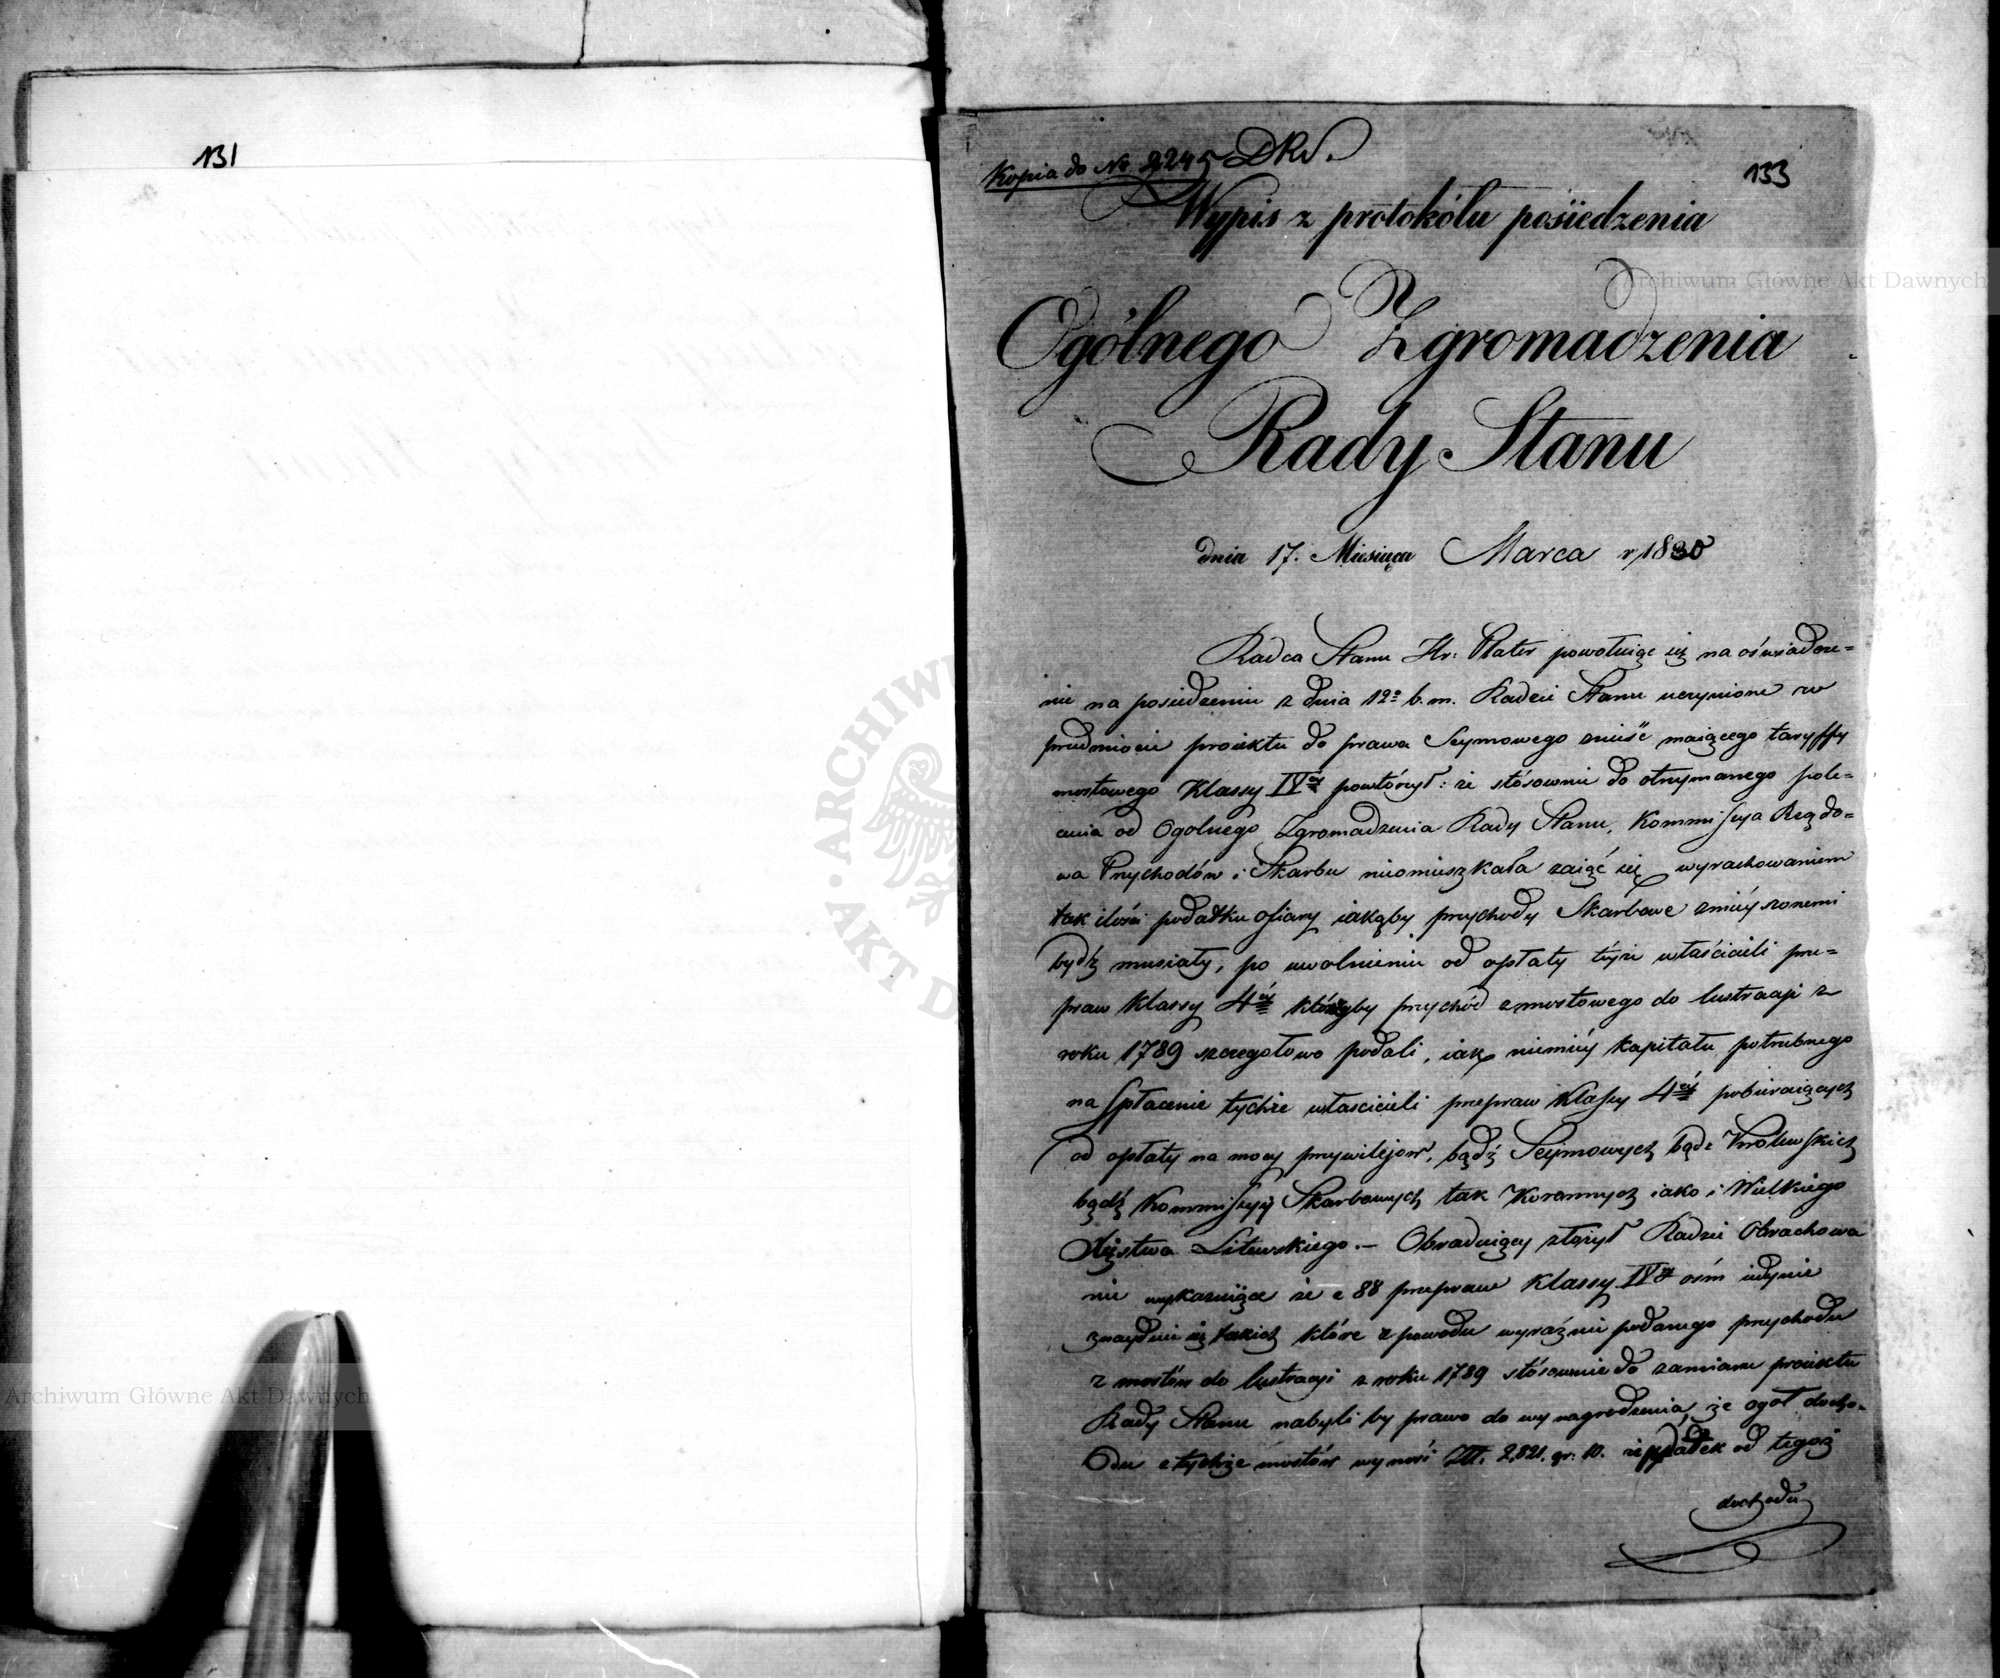 131
Kopia do Nr 2,245 DRS.
133
Wypis z protokółu posiedzenia
Ogólnego Zgromadzenia
Rady Stanu
dnia 17. Miesiąca Marca r 1830
Radca Stanu Hr: Plater powołuiąc się na oświadcze=
nie na posiedzeniu z dnia 12º b.m. Radzie Stanu uczynione w
przedmiocie proiektu do prawa Seymowego znieść maiącego taryffy
mostowego Klassy IVéy powtórzył: że stósownie do otrzymanego pole=
cenia od Ogolnego Zgromadzenia Rady Stanu, Kommissya Rządo=
wa Przychodów i Skarbu nieomieszkała zaiąć się wyrachowaniem
tak ilości podatku ofiary iakąby przychody Skarbowe zmnieyszonemi
bydź musiały, po uwolnieniu od opłaty téyże właścicieli prze=
praw Klassy 4éy którzyby przychód z mostowego do lustracji z
roku 1789 szczegołowo podali, iak niemniéy kapitału potrzebnego
na spłacenie tychże właścicieli przepraw Klassy 4éy pobieraiących
od opłaty na mocy przywilejow, bądź Seymowych bądź Krolewskich
bądź Kommissyy Skarbowych tak Koronnych iako i Wielkiego
Xięstwa Litewskiego. — Obraduiący złożył Radzie Obrachowa
nie wykazuiące że z 88 przepraw Klassy IVéy ośm iedynie
znayduie się takich które z powodu wyraźnie podanego przychodu
z mostów do lustracji z roku 1789 stósownie do zamiaru proiektu
Rady Stanu nabyli by prawo do wynagrodzenia, że ogół docho=
du z tychże mostów wynosi Złł. 2,821. gr: 10. że podatek od tegoż
dochodu
Archiwum Główne Akt Dawnych
Archiwum Główne Akt Dawnych